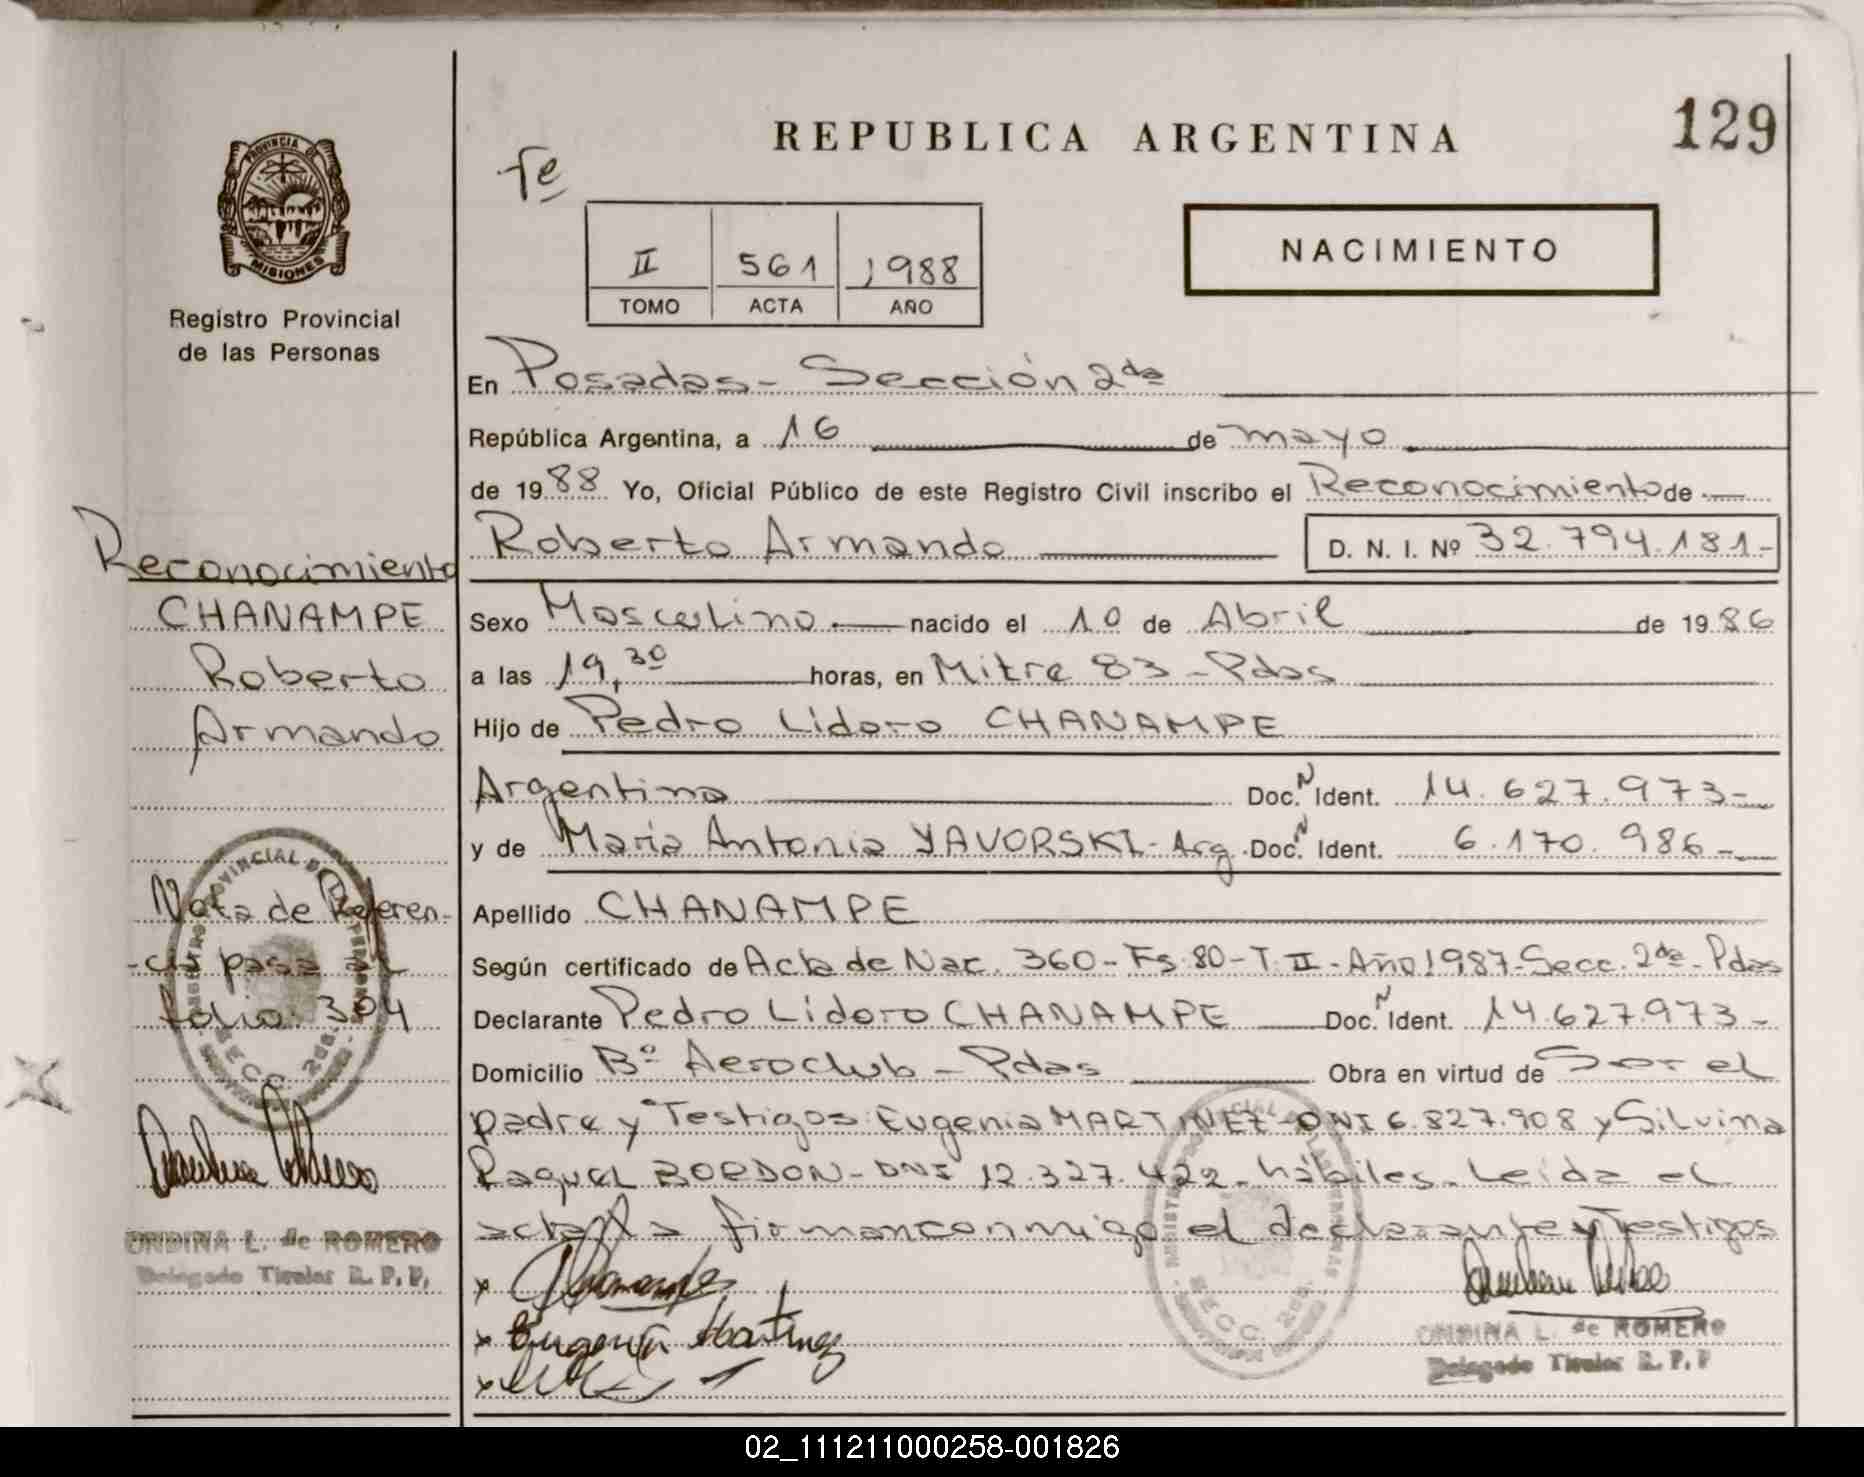 REPUBLICA ARGENTINA
129
Te
PROVINCIA DE
MISIONES
Registro Provincial
de las Personas
II 561 1988
TOMO ACTA AÑO
NACIMIENTO
En Posadas - Sección 2da
República Argentina, a 16 de mayo
de 1988 Yo, Oficial Público de este Registro Civil inscribo el Reconocimiento de
Roberto Armando D. N. I. Nº 32.794.181-
Sexo Masculino nacido el 10 de Abril de 1986
a las 19,30 horas, en Mitre 83 - Pdas
Hijo de Pedro Lidoro CHANAMPE
Argentino Doc. N Ident. 14.627.973-
y de Maria Antonia YAVORSKI - Arg. Doc. N Ident. 6.170.986-
Apellido CHANAMPE
Según certificado de Acta de Nac. 360 - Fs 80 - T. II - Año 1987 - Secc. 2da - Pdas
Declarante Pedro Lidoro CHANAMPE Doc. N Ident. 14.627.973-
Domicilio Bº Aeroclub - Pdas Obra en virtud de Ser el
padre y Testigos: Eugenia MARTINEZ - DNI 6.827.908 y Silvina
Raquel BORDON - DNI 12.327.422 - hábiles. Leída el
acta la firman conmigo el declarante y Testigos
x
x Eugenia Martinez
x
ONDINA L. de ROMERO
Delegado Titular R. P. P
Reconocimiento
CHANAMPE
Roberto
Armando
Nota de Referen-
-cia pasa al
Folio: 304
ONDINA L. de ROMERO
Delegado Titular R. P. P.
02_111211000258-001826